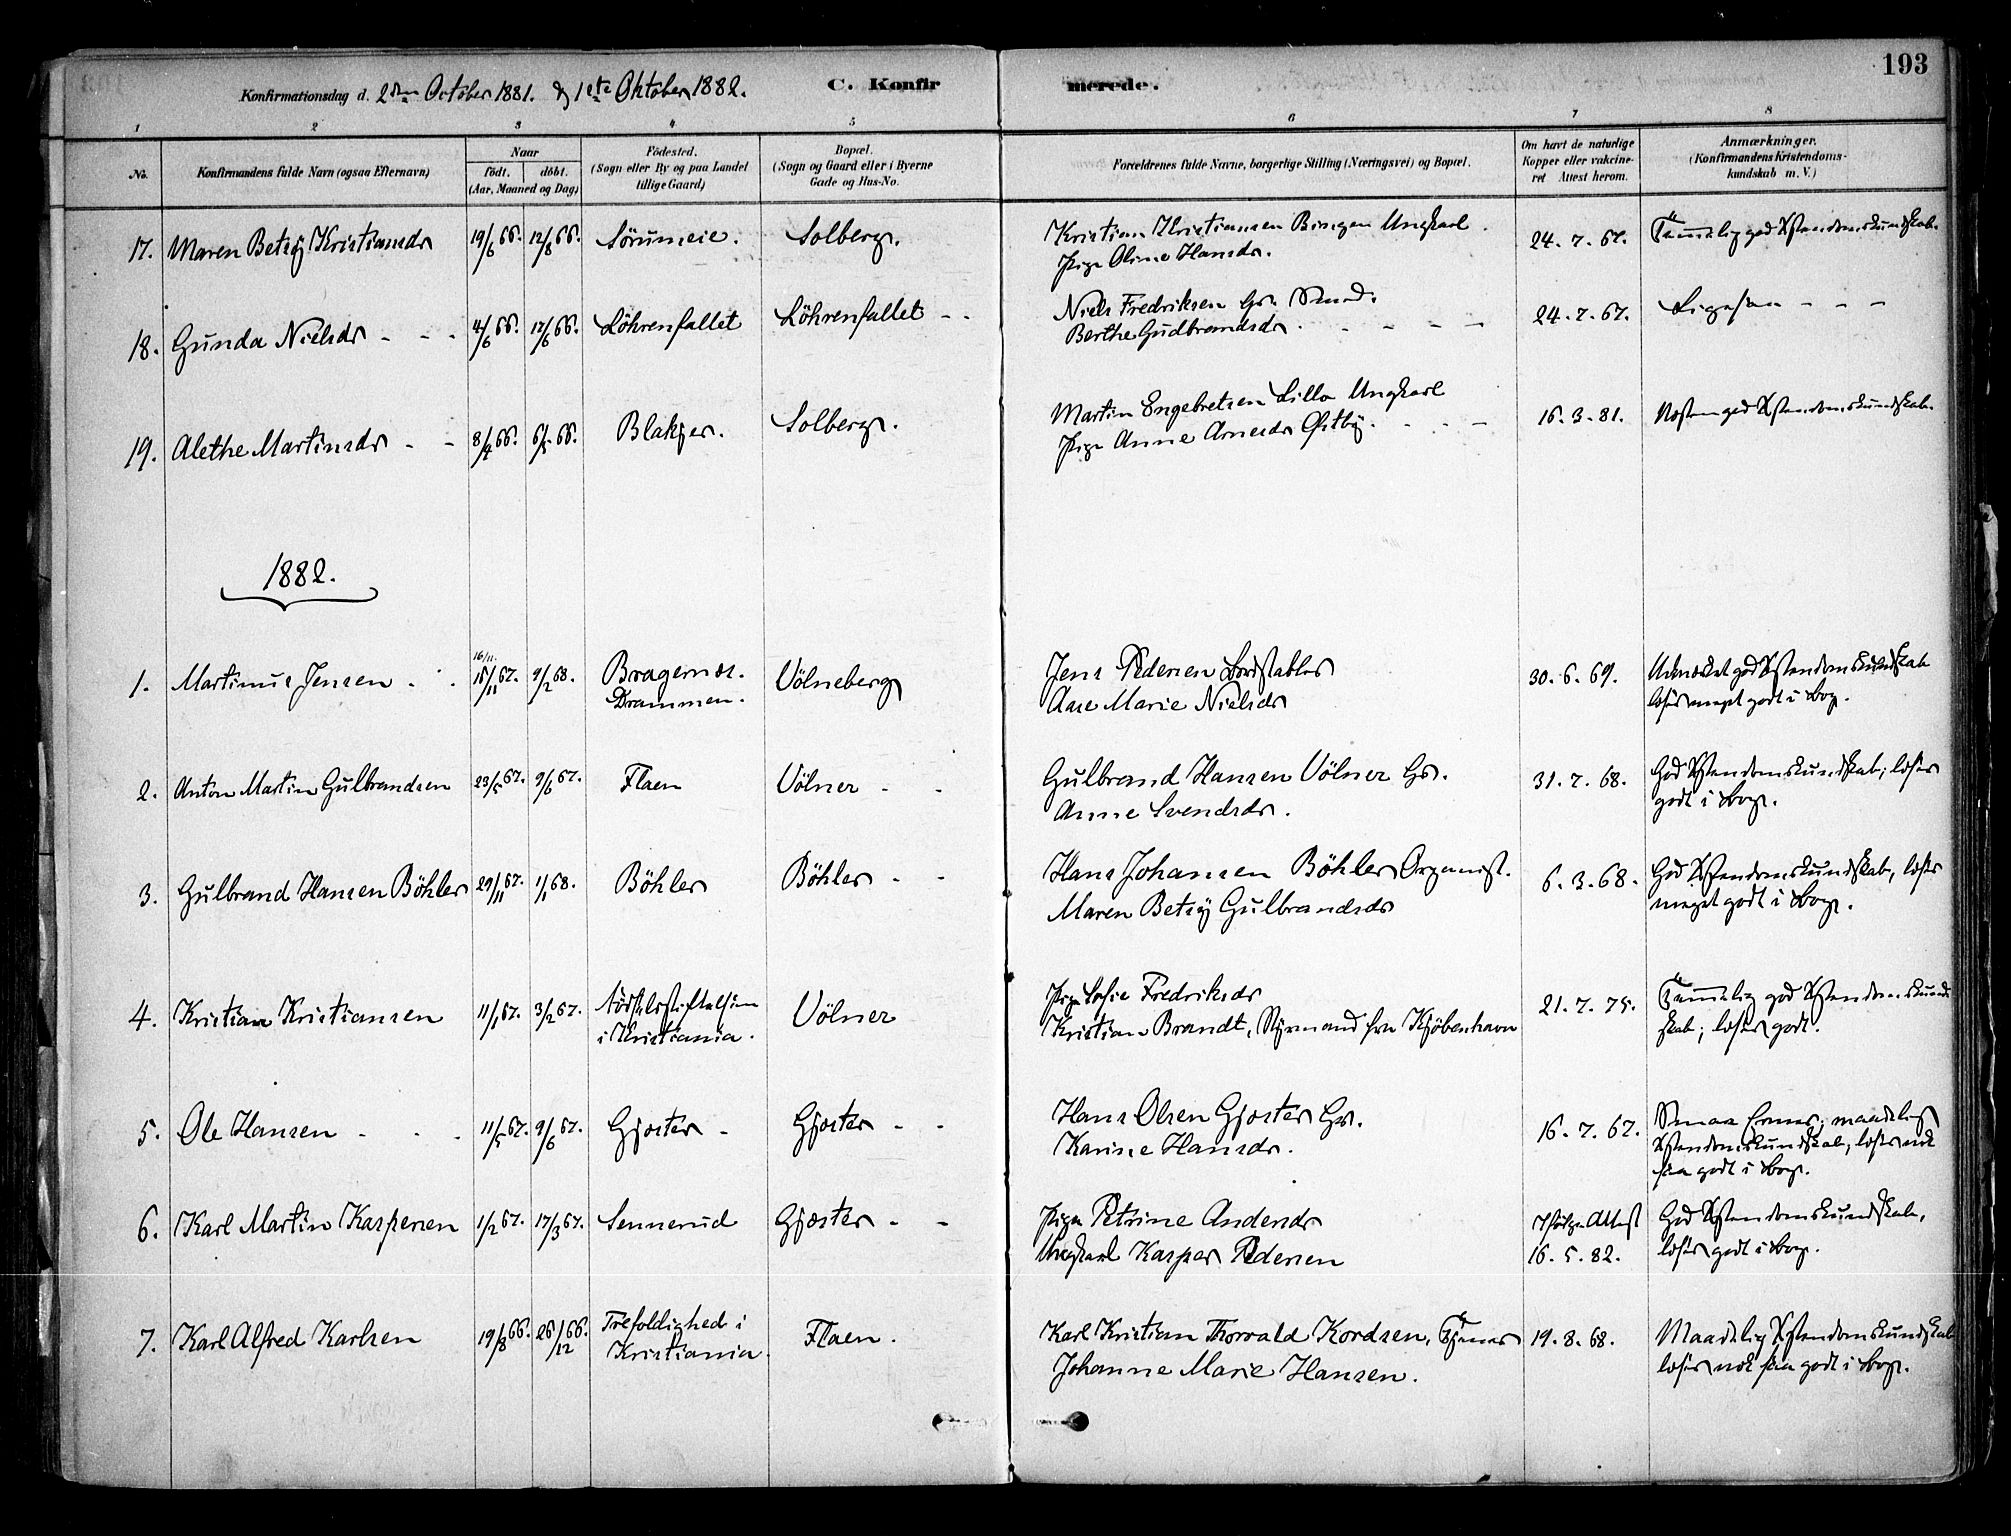 193
Konfirmationsdag d. 2den October 1881. & 1ste Oktober 1882. C. Konfirmerede.
1 2 3 4 5 6 7 8
No. Konfirmandens fulde Navn (ogsaa Efternavn) Naar födt. döbt. (Aar, Maaned og Dag) Födested. (Sogn eller By og paa Landet tillige Gaard) Bopæl. (Sogn og Gaard eller i Byerne Gade og Hus-No. Forældrenes fulde Navne, borgerlige Stilling (Næringsvei) og Bopæl. Om havt de naturlige Kopper eller vakcineret Attest herom. Anmærkninger. (Konfirmandens Kristendomskundskab m. V.)
17. Maren Betsÿ Kristiansdr 19/6 66. 12/8 66. Sörumeie. Solberg. Kristian Kristiansen Bingen Ungkarl. 24. 7. 67. Temmelig god Xstendomskundskab.
Pige Oline Hansdr.
18. Gunda Nielsdr - - - 4/6 66. 17/6 66. Löhrenfallet Löhrenfallet - - Niels Fredriksen Gr. Smed. 24. 7. 67. Ligesaa - - -
Berthe Gudbrandsdr. - - - -
19. Alethe Martinsdr - - 8/4 66. 6/5 66. Blakjer. Solberg. Martin Engebretsen Lillo Ungkarl 16. 3. 81. Næsten god Xstendomskundskab.
Pige Anne Arnesdr Østbÿ. - - -
1882.
1. Martinus Jensen . . 16/11. 15/11 67. 9/2 68. Bragernæs. Völneberg Jens Pedersen 30. 6. 69. Udmærket god Xstendomskundskab
Drammen. Ane Marie Nielsdr læser meget godt i Bog.
2. Anton Martin Gulbrandsen 23/5 67. 9/6 67. Flaen Völner - - Gulbrand Hansen Völner Gr. 31. 7. 68. God Xstendomskundskab; læser
Anne Svendsdr. godt i Bog.
3. Gulbrand Hansen Böhler 29/11 67. 1/1 68. Böhler Böhler - - Hans Johansen Böhler Organist. 6. 3. 68. God Xstendomskundskab, læser
Maren Betsÿ Gulbrandsdr meget godt i Bog.
4. Kristian Kristiansen 11/1 67. 3/2 67. Födselsstiftelsen Völner Pige Sofie Fredriksdr 21. 7. 75. Temmelig god Xstendomskund-
i Kristiania. Kristian Brandt, Styrmand fra Kjöbenhavn skab; læser godt.
5. Ole Hansen - - - 11/5 67. 9/6 67. Gjoster - Gjoster - - Hans Olsen Gjoster Gr. 16. 7. 67. Smaa Evner; maadelig
Karine Hansdr. Xstendomskundskab, læser nok
saa godt i Bog.
6. Karl Martin Kaspersen 1/2 67. 17/3 67. Sennerud Gjoster - - Pige Petrine Andersdr Ifölge Attest God Xstendomskundskab,
Ungkarl Kasper Pedersen 16. 5. 82. læser godt i Bog.
7. Karl Alfred Karlsen 19/8 66. 26/12 66. Trefoldighed i Flaen. Karl Kristian Thorvald Kordsen, Tjener 19. 8. 68. Maadelig Xstendomskundskab
Kristiania. Johanne Marie Hansen. læser nok saa godt i Bog.